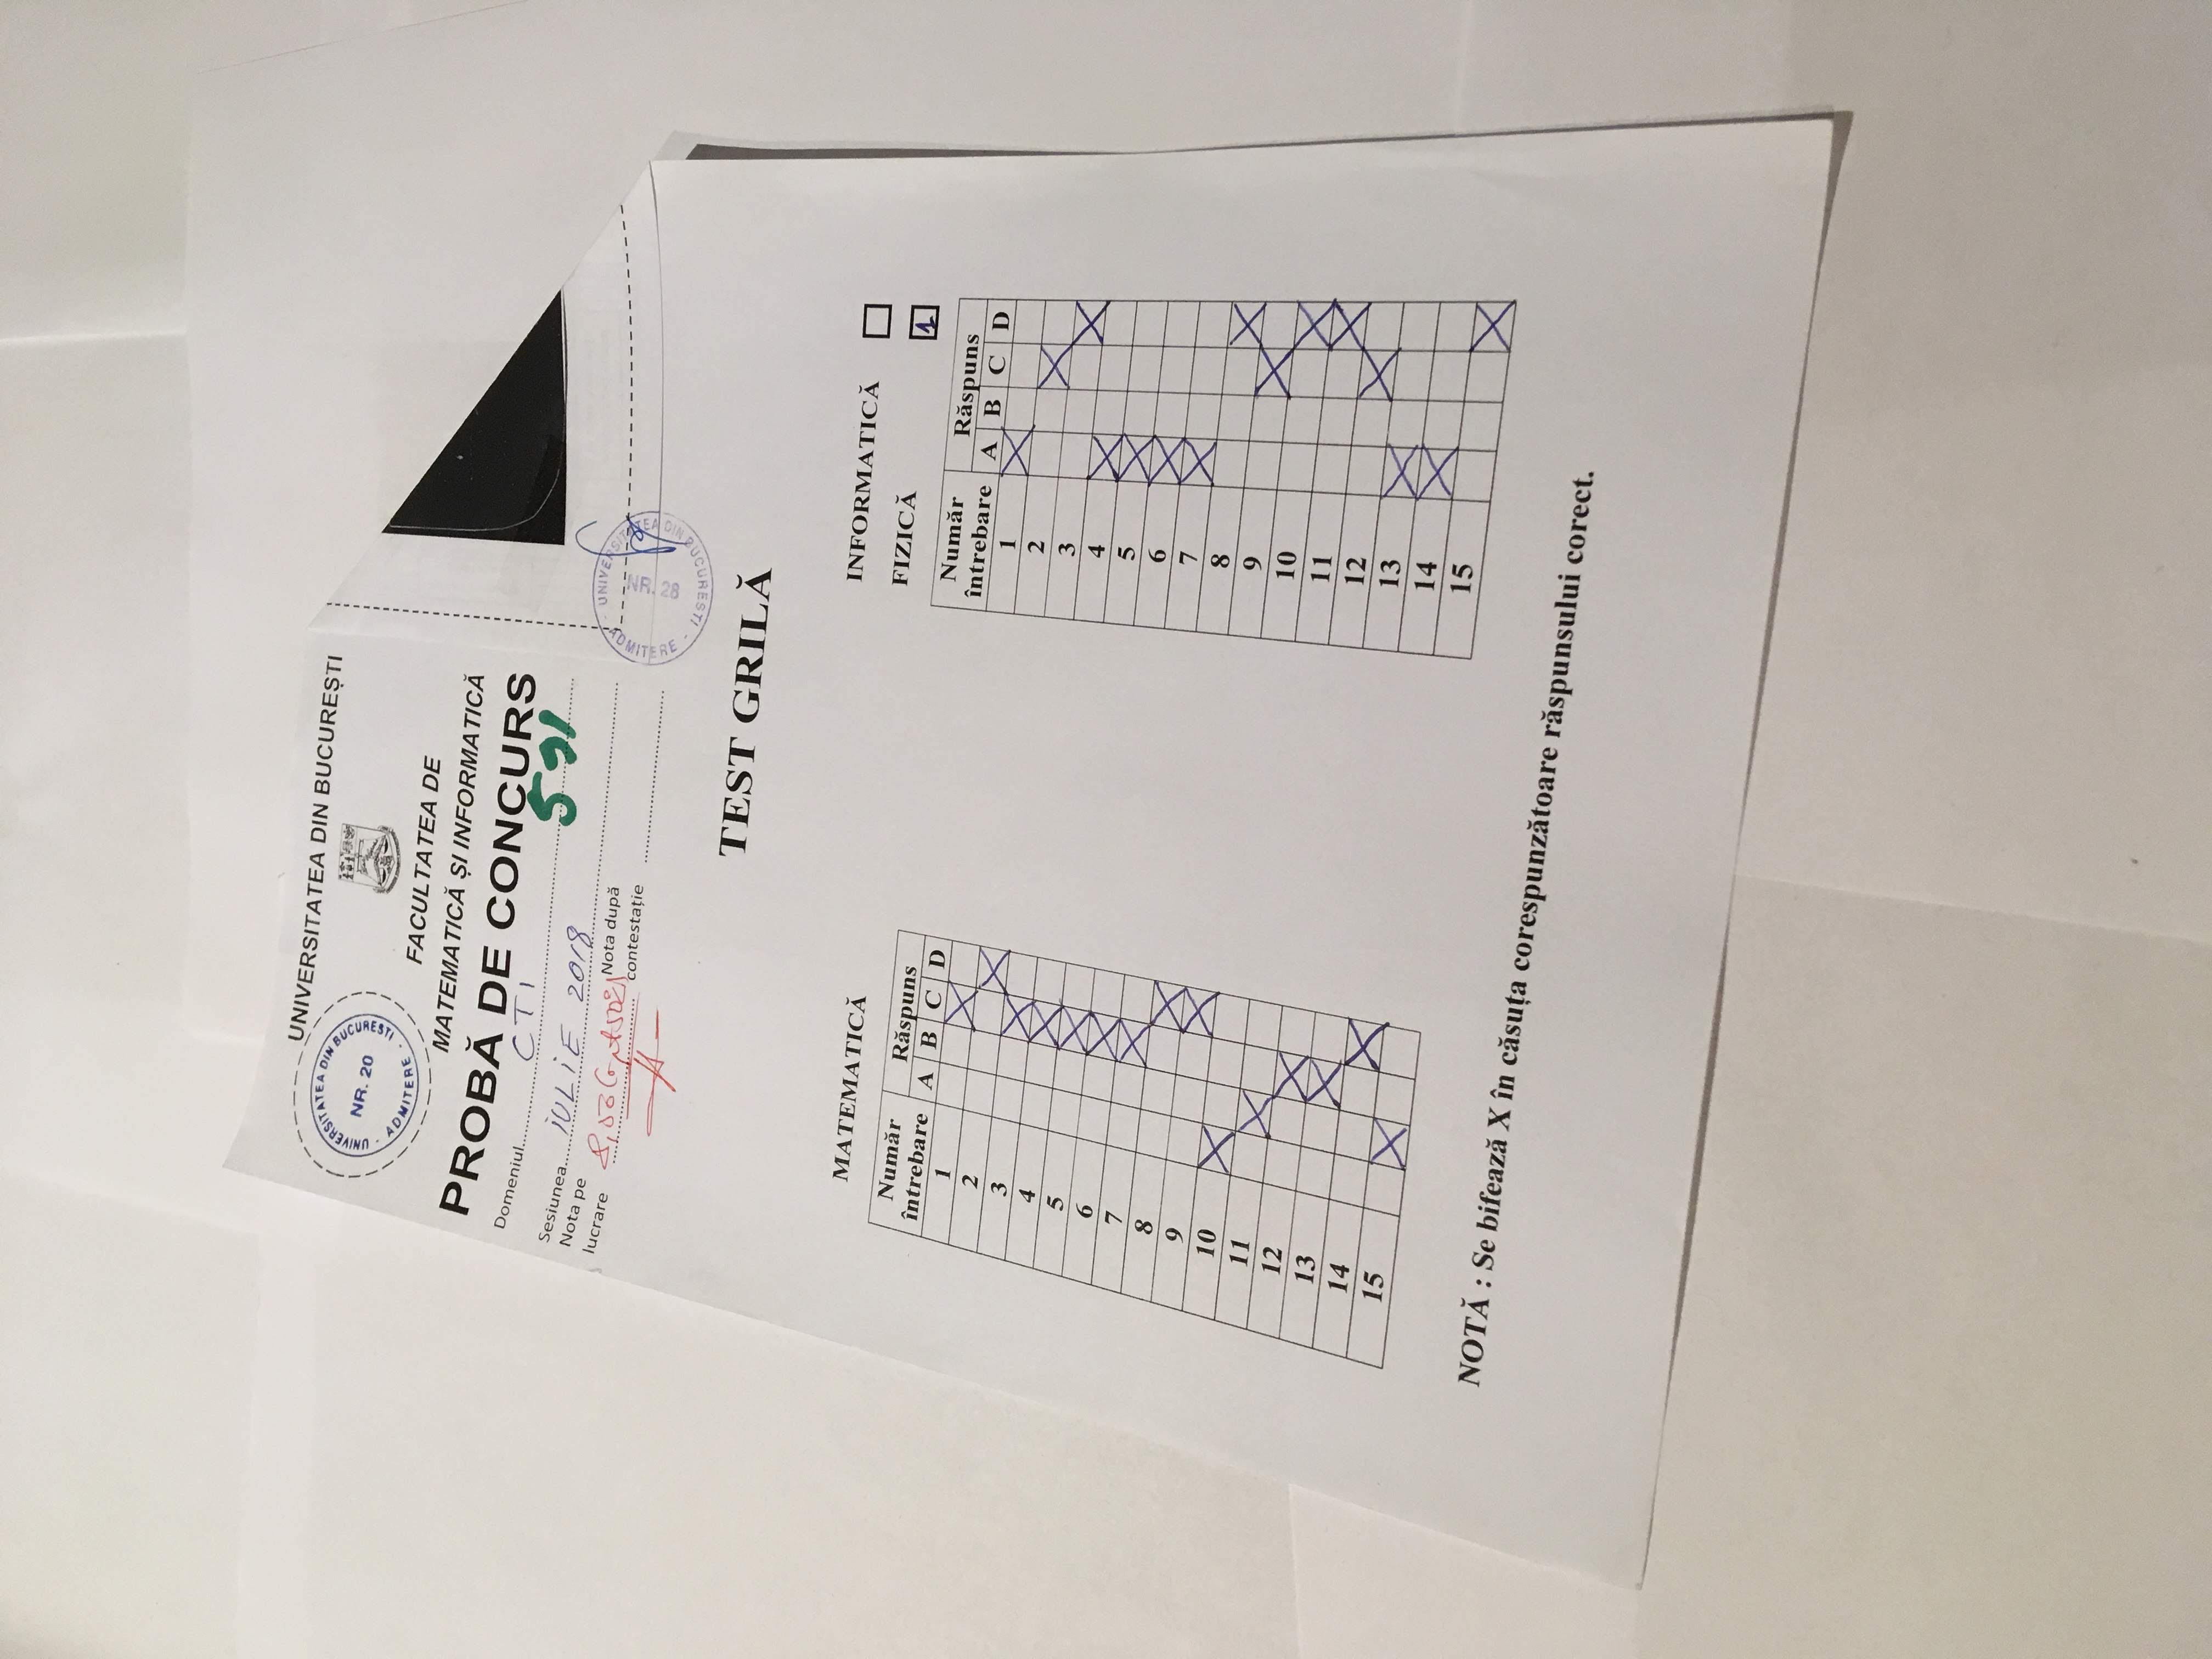 UNIVERSITATEA DIN BUCUREȘTI
UNIVERSITATEA DIN BUCURESTI
NR. 20
ADMITERE
FACULTATEA DE
MATEMATICĂ ȘI INFORMATICĂ
PROBĂ DE CONCURS
Domeniul CTI
571
Sesiunea IULIE 2018
Nota pe
lucrare
Nota după
contestație
UNIVERSITATEA DIN BUCURESTI
NR. 28
ADMITERE
TEST GRILĂ
MATEMATICĂ
Număr
întrebare
Răspuns
A B C D
1 X
2 X
3 X
4 X
5 X
6 X
7 X
8 X
9 X
10 X
11 X
12 X
13 X
14 X
15 X
INFORMATICĂ
FIZICĂ 1
Număr
întrebare
Răspuns
A B C D
1 X
2 X
3 X
4 X
5 X
6 X
7 X
8 X
9 X
10 X
11 X
12 X
13 X
14 X
15 X
NOTĂ : Se bifează X în căsuța corespunzătoare răspunsului corect.